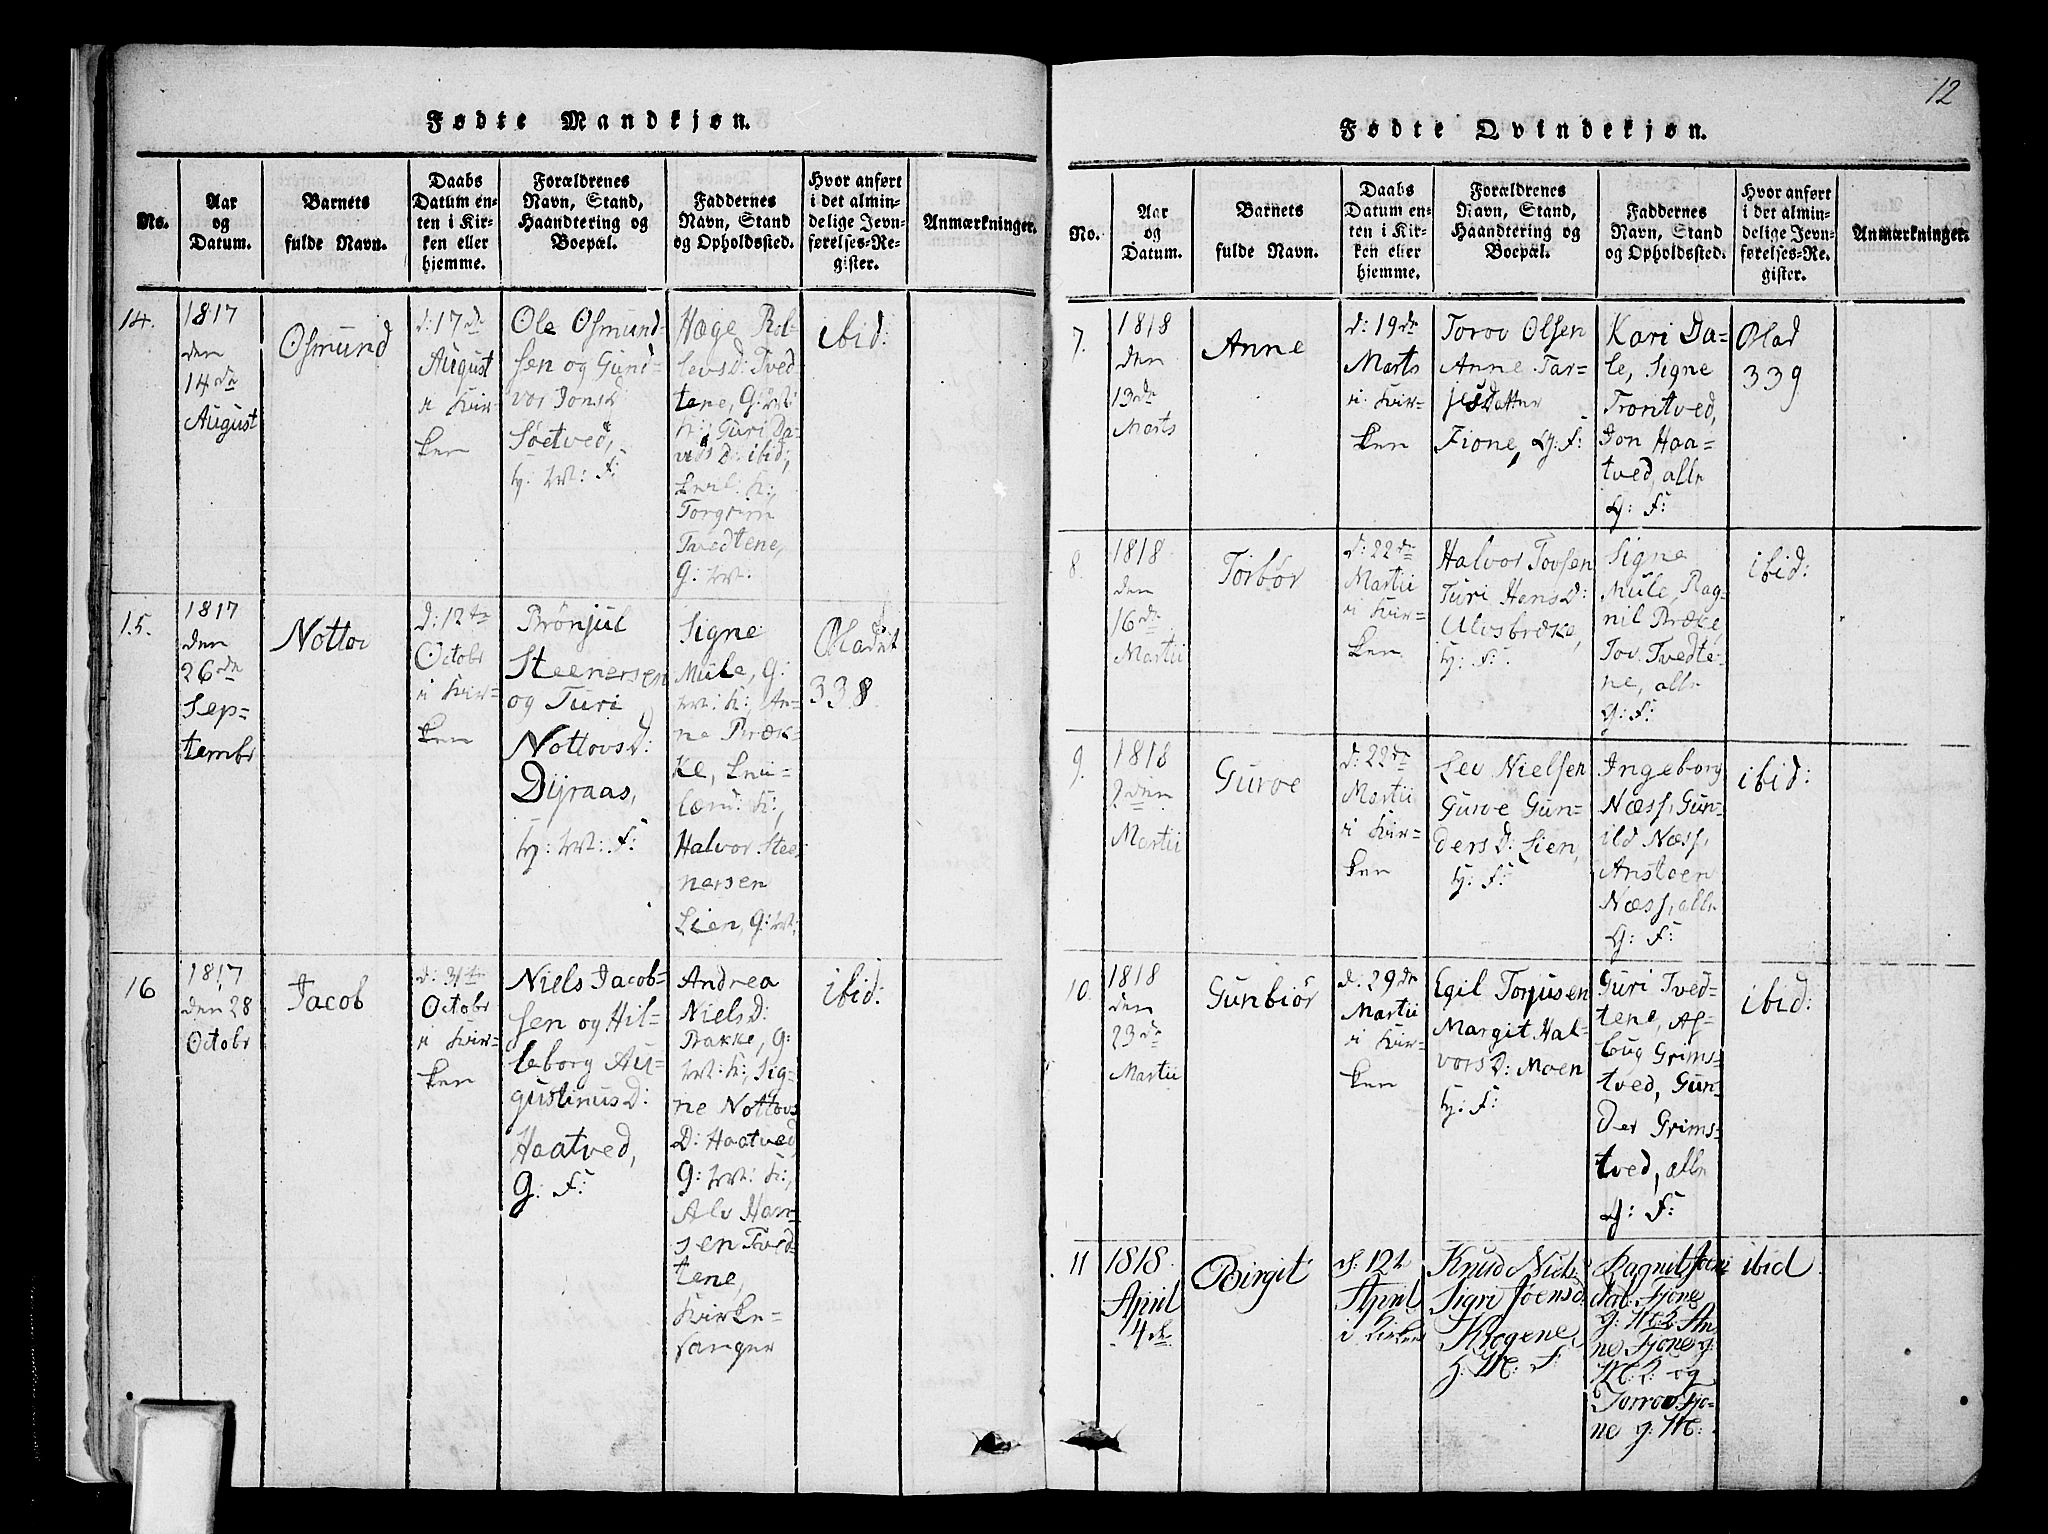 12
Fødte Mandkjøn.
No.
Aar
og
Datum.
Barnets
fulde Navn.
Daabs
Datum en-
ten i Kir-
ken eller
hjemme.
Forældrenes
Navn, Stand,
Haandtering og
Boepæl.
Faddernes
Navn, Stand
og Opholdssted.
Hvor anført
i det almin-
delige Jevn-
førelses-Re-
gister.
Anmærkninger.
14.
1817
den
14de
August
Osmund
d: 17de
August
i Kir-
ken
Ole Osmund-
sen og Gun-
vor JonsD:
Søetved,
H: M: F:
Hæge Rol-
levsD: Tved
tene, G: M:
K: Guri Da-
vidsD: ibid,
K:,
Torgrim
Tvedtene,
G: M:
ibid:
15.
1817
den
26de
Sep-
tembr
Nottov
d: 12te
Octobr
i Kir-
ken
Brönjul
Steenersen
og Turi
NottovsD:
Dyraas,
H: M: F:
Signe
Mule, G:
M: K:, An-
ne Bræk-
ke,
K:,
Halvor Stee
nersen
Lien, G: M:
Bladet
338
16
1817
den 28
Octobr
Jacob
d: 31te
Octobr
i Kir-
ken
Niels Jacob-
sen og Hil-
leborg Au-
gustinusD:
Haatved,
G: F:
Andrea
NielsD:
Bakke, G:
M: K:, Sig-
ne Nottovs
D: Haatved,
G: M: K:,
Alv Han-
sen Tved-
tene,
Kirke-
sanger
ibid:
Fødte Qvindekjøn.
No.
Aar
og
Datum.
Barnets
fulde Navn.
Daabs
Datum en-
ten i Kir-
ken eller
hjemme.
Forældrenes
Navn, Stand,
Haandtering og
Boepæl.
Faddernes
Navn, Stand
og Opholdssted.
Hvor anført
i det almin-
delige Jevn-
førelses-Re-
gister.
Anmærkninger.
7.
1818
den
13de
Marts
Anne
d: 19de
Marts
i Kir-
ken
Torov Olsen
Anne Tar-
jesDatter
Fione, G: F:
Kari Da-
le, Signe
Trontved,
Jon Haa-
tved, alle
G: F:
Blad
339
8.
1818
den
16de
Martii
Torbör
d: 22de
Martii
i Kir-
ken
Halvor Tovsen
Turi HansD:
Ulvsbrække,
H: F:
Signe
Mule, Rag-
nil Bræke,
Tov Tvedte-
ne, alle
G: F:
ibid:
9.
1818
2den
Martii
Guroe
d: 22de
Martii
i Kir-
ken
Lev Nielsen
Guroe Gun-
dersD: Lien,
H: F:
Ingeborg
Næss, Gun-
ild Næss,
Anstoen
Næss, alle
G: F:
ibid:
10.
1818
den
23de
Martii
Gunbiör
d: 29de
Martii
i Kir-
ken
Egil Torjusen
Margit Hal-
vorsD: Moen
H: F:
Guri Tved-
tene, As-
bug Grims-
tved, Gun-
der Grims-
tved, alle
G: F:
ibid:
11
1818
April
4de
Birgit
d. 12t
April
i Kirken
Knud Niels:
Sigri JoensD
Krogene,
H: M: F:
Ragnil
dal Fjone
g: K: An-
ne Fjone g:
K: og
Torrov Fjo-
ne g: M:
ibid